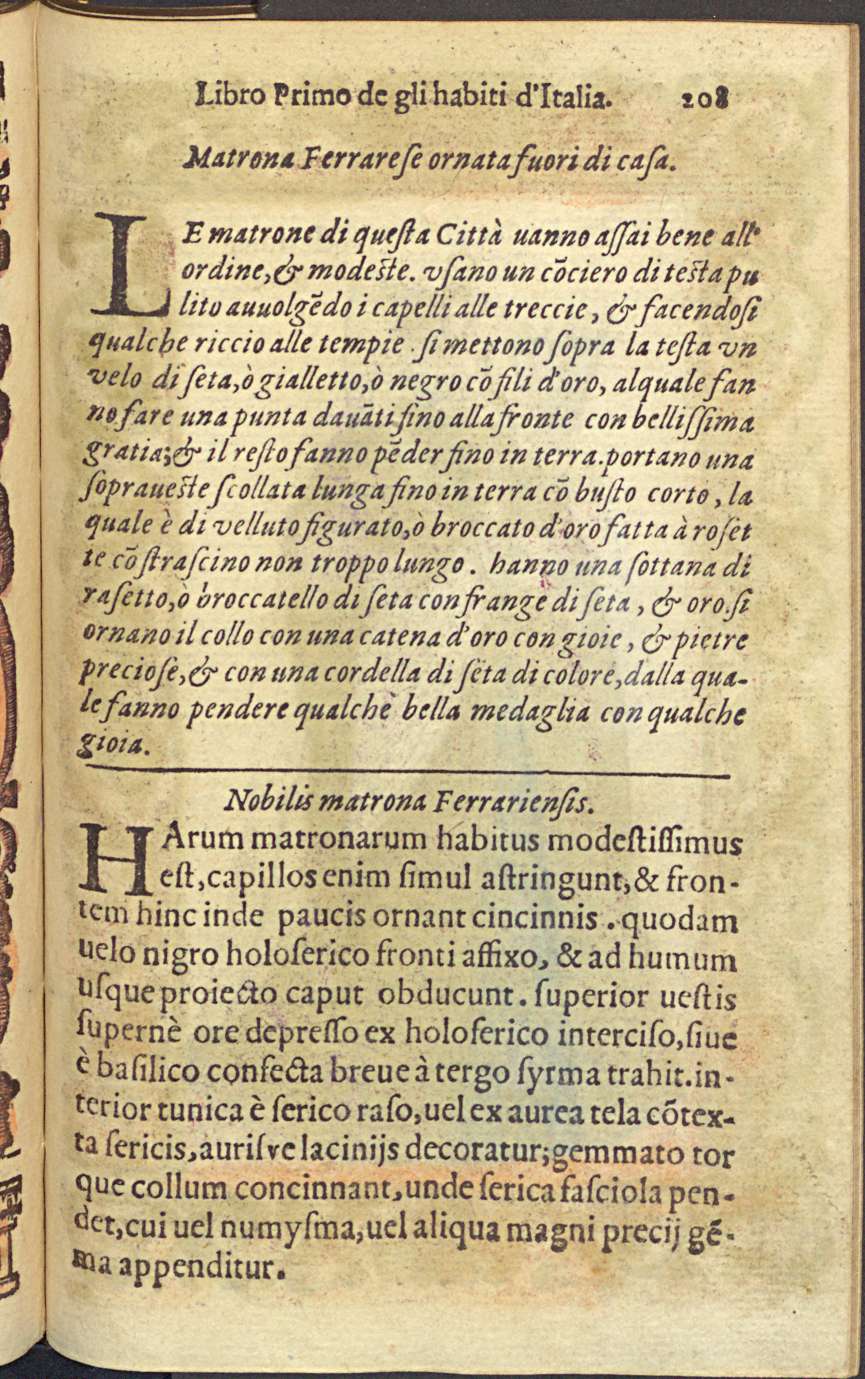 Libro Primo de gli habiti d'Italia. 208
Matrona Ferrareſe ornata fuori di caſa.
LE matrone di queſta Città uanno aſſai bene all'
ordine, & modeſte. vſano un cõciero di teſta pu
lito auuolgẽdo i capelli alle treccie, & facendoſi
qualche riccio alle tempie. ſi mettono ſopra la teſta vn
velo di ſeta, ò gialletto, ò negro cõ fili d'oro, al quale fan
no fare una punta dauãti fino alla fronte con belliſſima
gratia; & il reſto fanno pẽder fino in terra. portano una
ſopraueſte ſcollata lunga fino in terra cõ buſto corto, la
quale è di velluto figurato, ò broccato d'oro fatta à roſet
te cõ ſtraſcino non troppo lungo. hanno una ſottana di
raſetto, ò broccatello di ſeta con frange di ſeta, & oro. ſi
ornano il collo con una catena d'oro con gioie, & pietre
precioſe, & con una cordella di ſeta di colore, dalla qua-
le fanno pendere qualche bella medaglia con qualche
gioia.
Nobilis matrona Ferrarienſis.
HArum matronarum habitus modeſtiſſimus
eſt, capillos enim ſimul aſtringunt, & fron-
tem hinc inde paucis ornant cincinnis. quodam
uelo nigro holoſerico fronti affixo, & ad humum
uſque proiecto caput obducunt. ſuperior ueſtis
ſupernè ore depreſſo ex holoſerico interciſo, ſiue
è baſilico confecta breue à tergo ſyrma trahit. in-
terior tunica è ſerico raſo, uel ex aurea tela cõtex-
ta ſericis, auriſve lacinijs decoratur; gemmato tor
que collum concinnant, unde ſerica faſciola pen-
det, cui uel numyſma, uel aliqua magni precij gẽ-
ma appenditur.